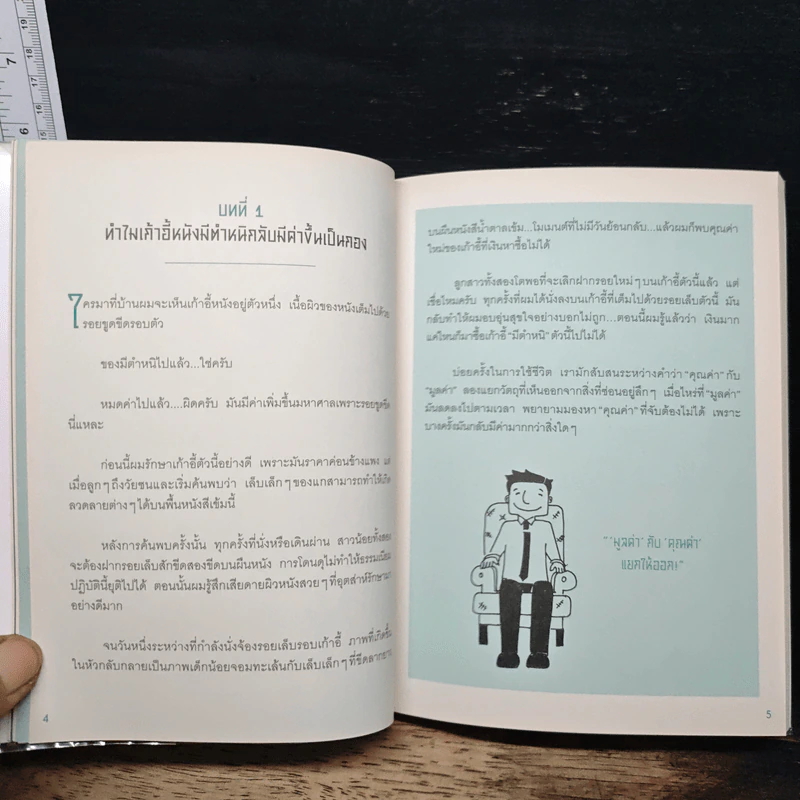 บทที่ 1
ทำไมเก้าอี้หนังมีตำหนิกลับมีค่าขึ้นเป็นกอง
ใครมาที่บ้านผมจะเห็นเก้าอี้หนังอยู่ตัวหนึ่ง เนื้อผิวของหนังเต็มไปด้วย
รอยขูดขีดรอบตัว
ของมีตำหนิไปแล้ว...ใช่ครับ
หมดค่าไปแล้ว....ผิดครับ มันมีค่าเพิ่มขึ้นมหาศาลเพราะรอยขูดขีด
นี่แหละ
ก่อนนี้ผมรักษาเก้าอี้ตัวนี้อย่างดี เพราะมันราคาค่อนข้างแพง แต่
เมื่อลูกๆถึงวัยซนและเริ่มค้นพบว่า เล็บเล็กๆของแกสามารถทำให้เกิด
ลวดลายต่างๆได้บนพื้นหนังสีเข้มนี้
หลังการค้นพบครั้งนั้น ทุกครั้งที่นั่งหรือเดินผ่าน สาวน้อยทั้งสอง
จะต้องฝากรอยเล็บสักขีดสองขีดบนผืนหนัง การโดนดุไม่ทำให้ธรรมเนียม
ปฏิบัตินี้ยุติไปได้ ตอนนั้นผมรู้สึกเสียดายผิวหนังสวยๆที่อุตส่าห์รักษามา
อย่างดีมาก
จนวันหนึ่งระหว่างที่กำลังนั่งจ้องรอยเล็บรอบเก้าอี้ ภาพที่เกิดขึ้น
ในหัวกลับกลายเป็นภาพเด็กน้อยจอมทะเล้นกับเล็บเล็กๆที่ขีดลากยาว
4
บนผืนหนังสีน้ำตาลเข้ม...โมเมนต์ที่ไม่มีวันย้อนกลับ...แล้วผมก็พบคุณค่า
ใหม่ของเก้าอี้ที่เงินหาซื้อไม่ได้
ลูกสาวทั้งสองโตพอที่จะเลิกฝากรอยใหม่ๆบนเก้าอี้ตัวนี้แล้ว แต่
เชื่อไหมครับ ทุกครั้งที่ผมได้นั่งลงบนเก้าอี้ที่เต็มไปด้วยรอยเล็บตัวนี้ มัน
กลับทำให้ผมอบอุ่นสุขใจอย่างบอกไม่ถูก...ตอนนี้ผมรู้แล้วว่า เงินมาก
แค่ไหนก็มาซื้อเก้าอี้ "มีตำหนิ" ตัวนี้ไปไม่ได้
บ่อยครั้งในการใช้ชีวิต เรามักสับสนระหว่างคำว่า "คุณค่า" กับ
"มูลค่า" ลองแยกวัตถุที่เห็นออกจากสิ่งที่ซ่อนอยู่ลึกๆ เมื่อไหร่ที่ "มูลค่า"
มันลดลงไปตามเวลา พยายามมองหา "คุณค่า" ที่จับต้องไม่ได้ เพราะ
บางครั้งมันกลับมีค่ามากกว่าสิ่งใดๆ
"'มูลค่า' กับ 'คุณค่า'
แยกให้ออก!"
5